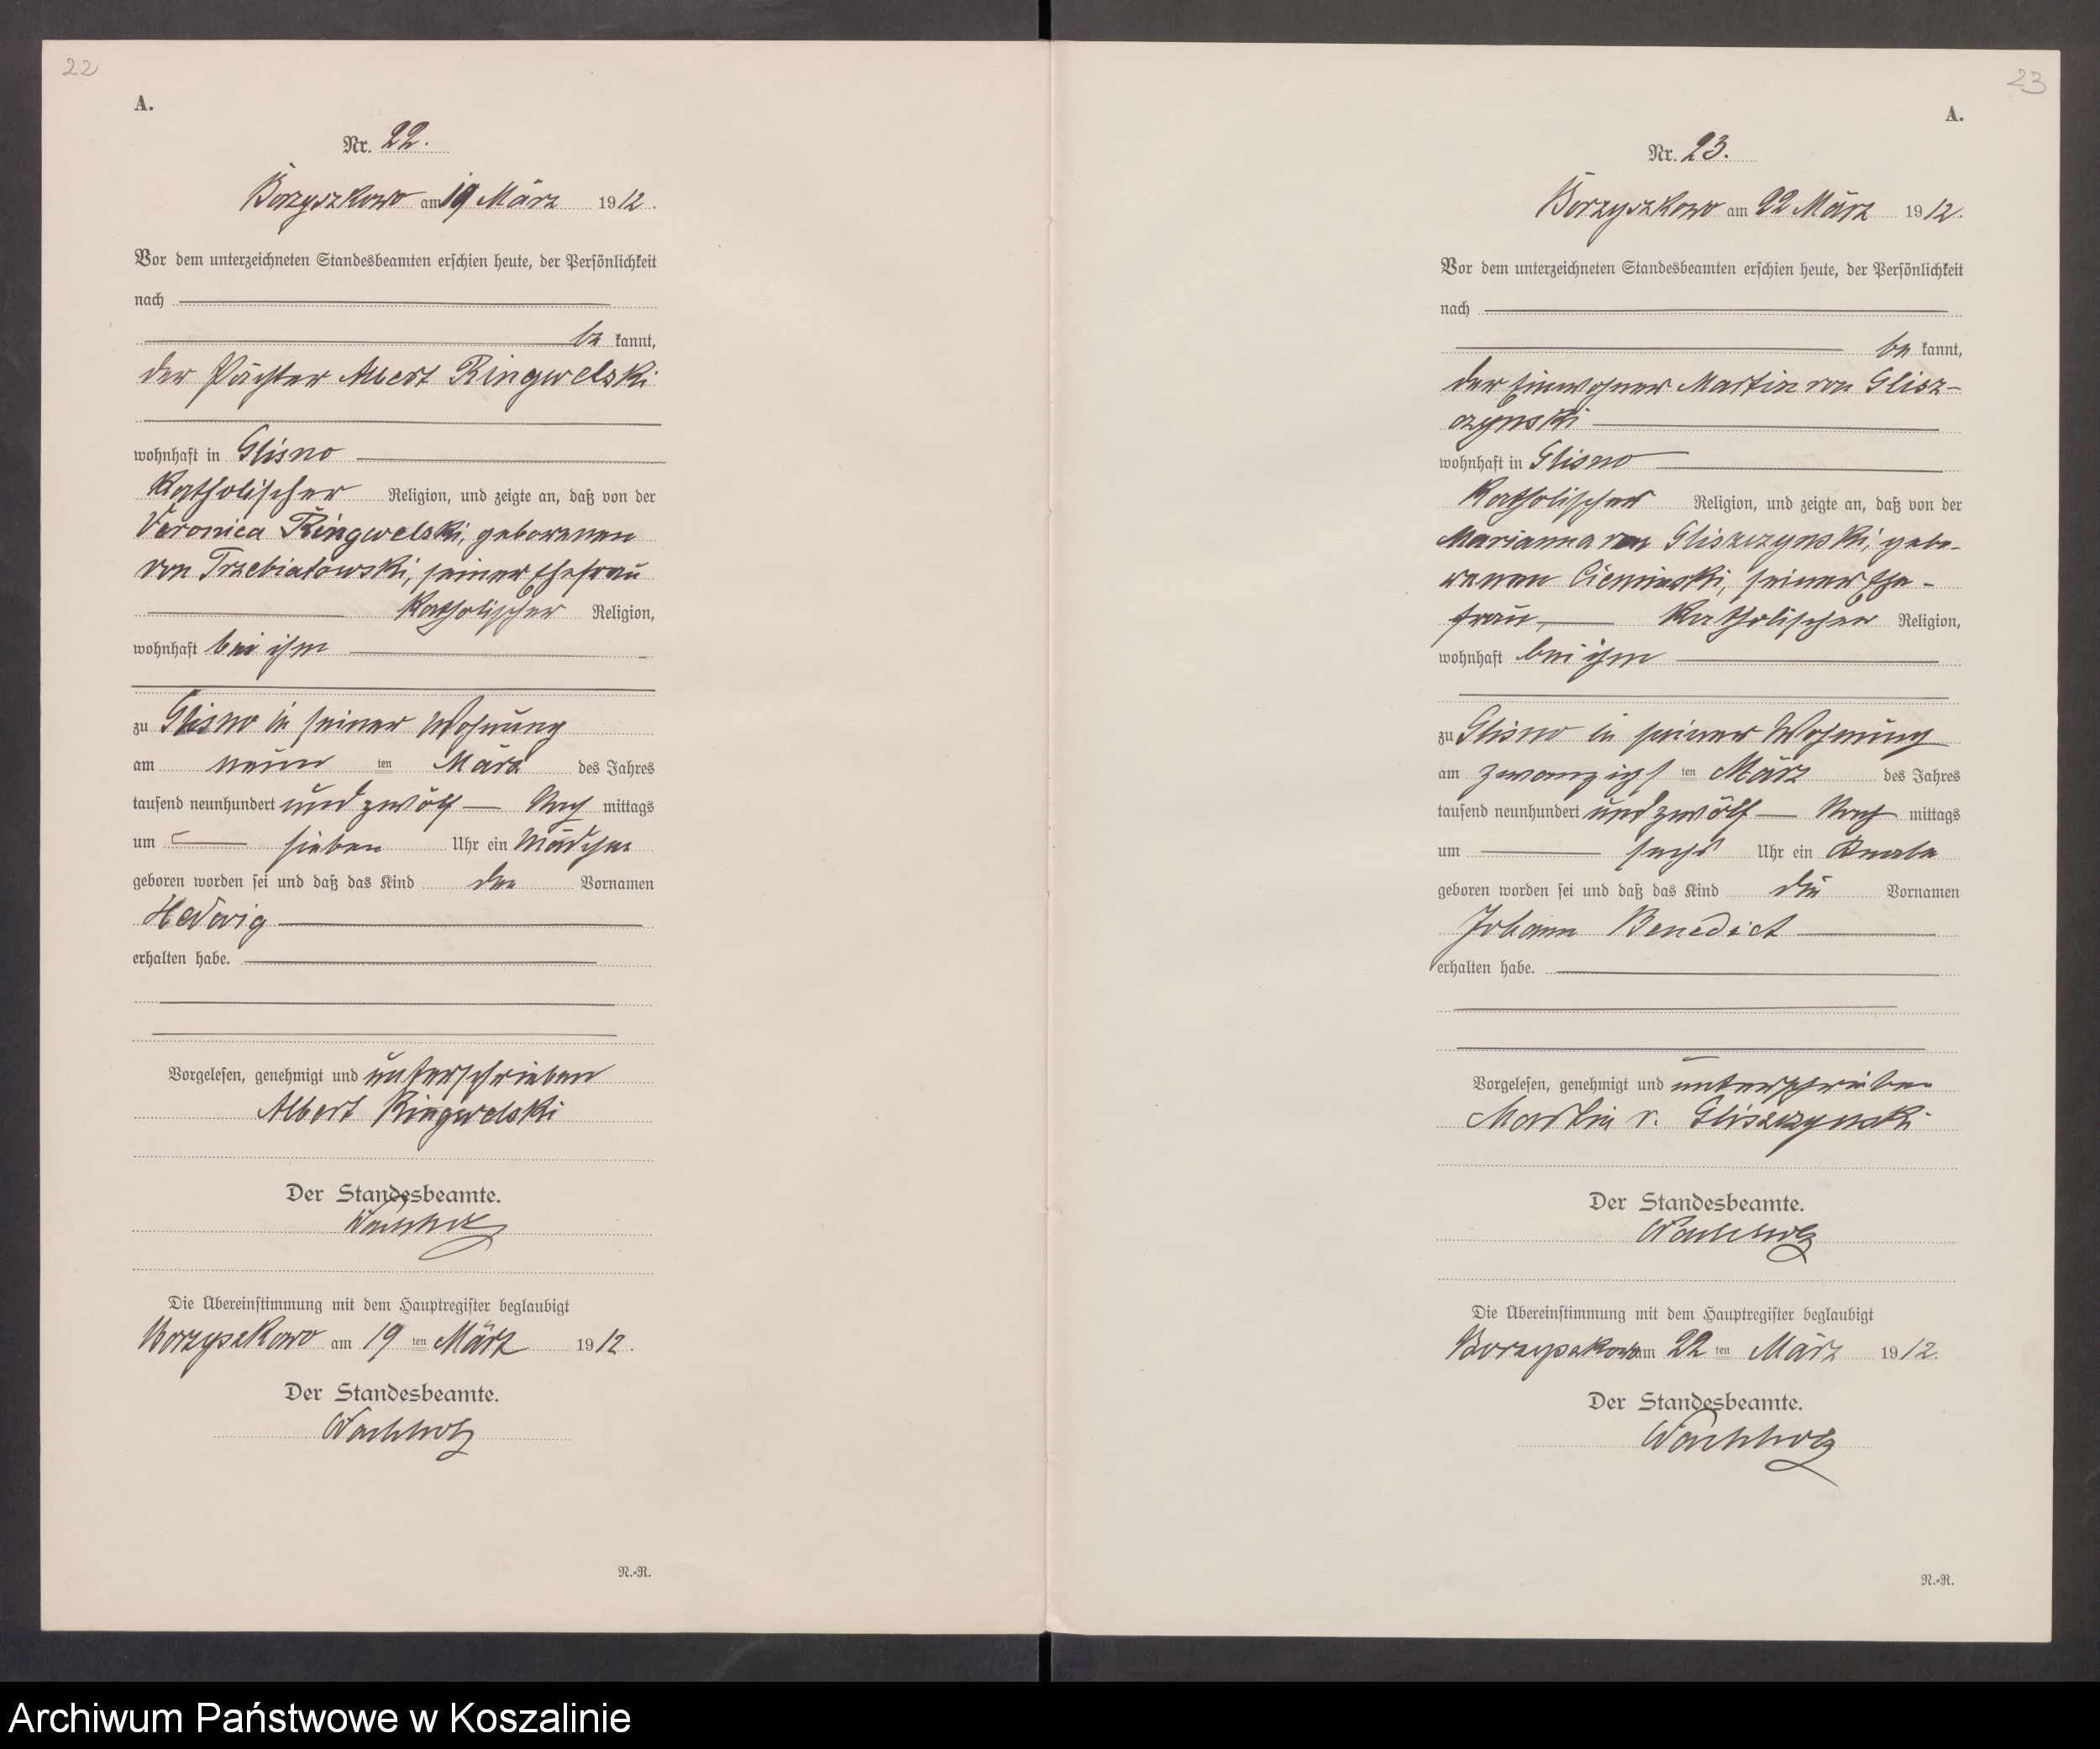 22
A.
Nr. 22.
Borzyszkowo am 19 März 1912.
Vor dem unterzeichneten Standesbeamten erschien heute, der Persönlichkeit
nach
be kannt,
der Pächter Albert Ringwelski
wohnhaft in Glisno
katholischer Religion, und zeigte an, daß von der
Veronica Ringwelski, geborenen
von Trzebiatowski, seiner Ehefrau
katholischer Religion,
wohnhaft bei ihm
zu Glisno in seiner Wohnung
am neun ten März des Jahres
tausend neunhundert und zwölf Nach mittags
um sieben Uhr ein Mädchen
geboren worden sei und daß das Kind den Vornamen
Hedwig
erhalten habe.
Vorgelesen, genehmigt und unterschrieben
Albert Ringwelski
Der Standesbeamte.
Wachholz
Die Übereinstimmung mit dem Hauptregister beglaubigt
Borzyszkowo am 19 ten März 1912.
Der Standesbeamte.
Wachholz
N.-R.
23
A.
Nr. 23.
Borzyszkowo am 22 März 1912.
Vor dem unterzeichneten Standesbeamten erschien heute, der Persönlichkeit
nach
be kannt,
der Einwohner Martin von Glisz-
czynski
wohnhaft in Glisno
katholischer Religion, und zeigte an, daß von der
Marianna von Gliszczynski, gebo-
renen Cieminski, seiner Ehe-
frau, katholischer Religion,
wohnhaft bei ihm
zu Glisno in seiner Wohnung
am zwanzigs ten März des Jahres
tausend neunhundert und zwölf Nach mittags
um sechs Uhr ein Knabe
geboren worden sei und daß das Kind die Vornamen
Johann Benedict
erhalten habe.
Vorgelesen, genehmigt und unterschrieben
Martin v. Gliszczynski
Der Standesbeamte.
Wachholz
Die Übereinstimmung mit dem Hauptregister beglaubigt
Borzyszkowo am 22 ten März 1912.
Der Standesbeamte.
Wachholz
N.-R.
Archiwum Państwowe w Koszalinie